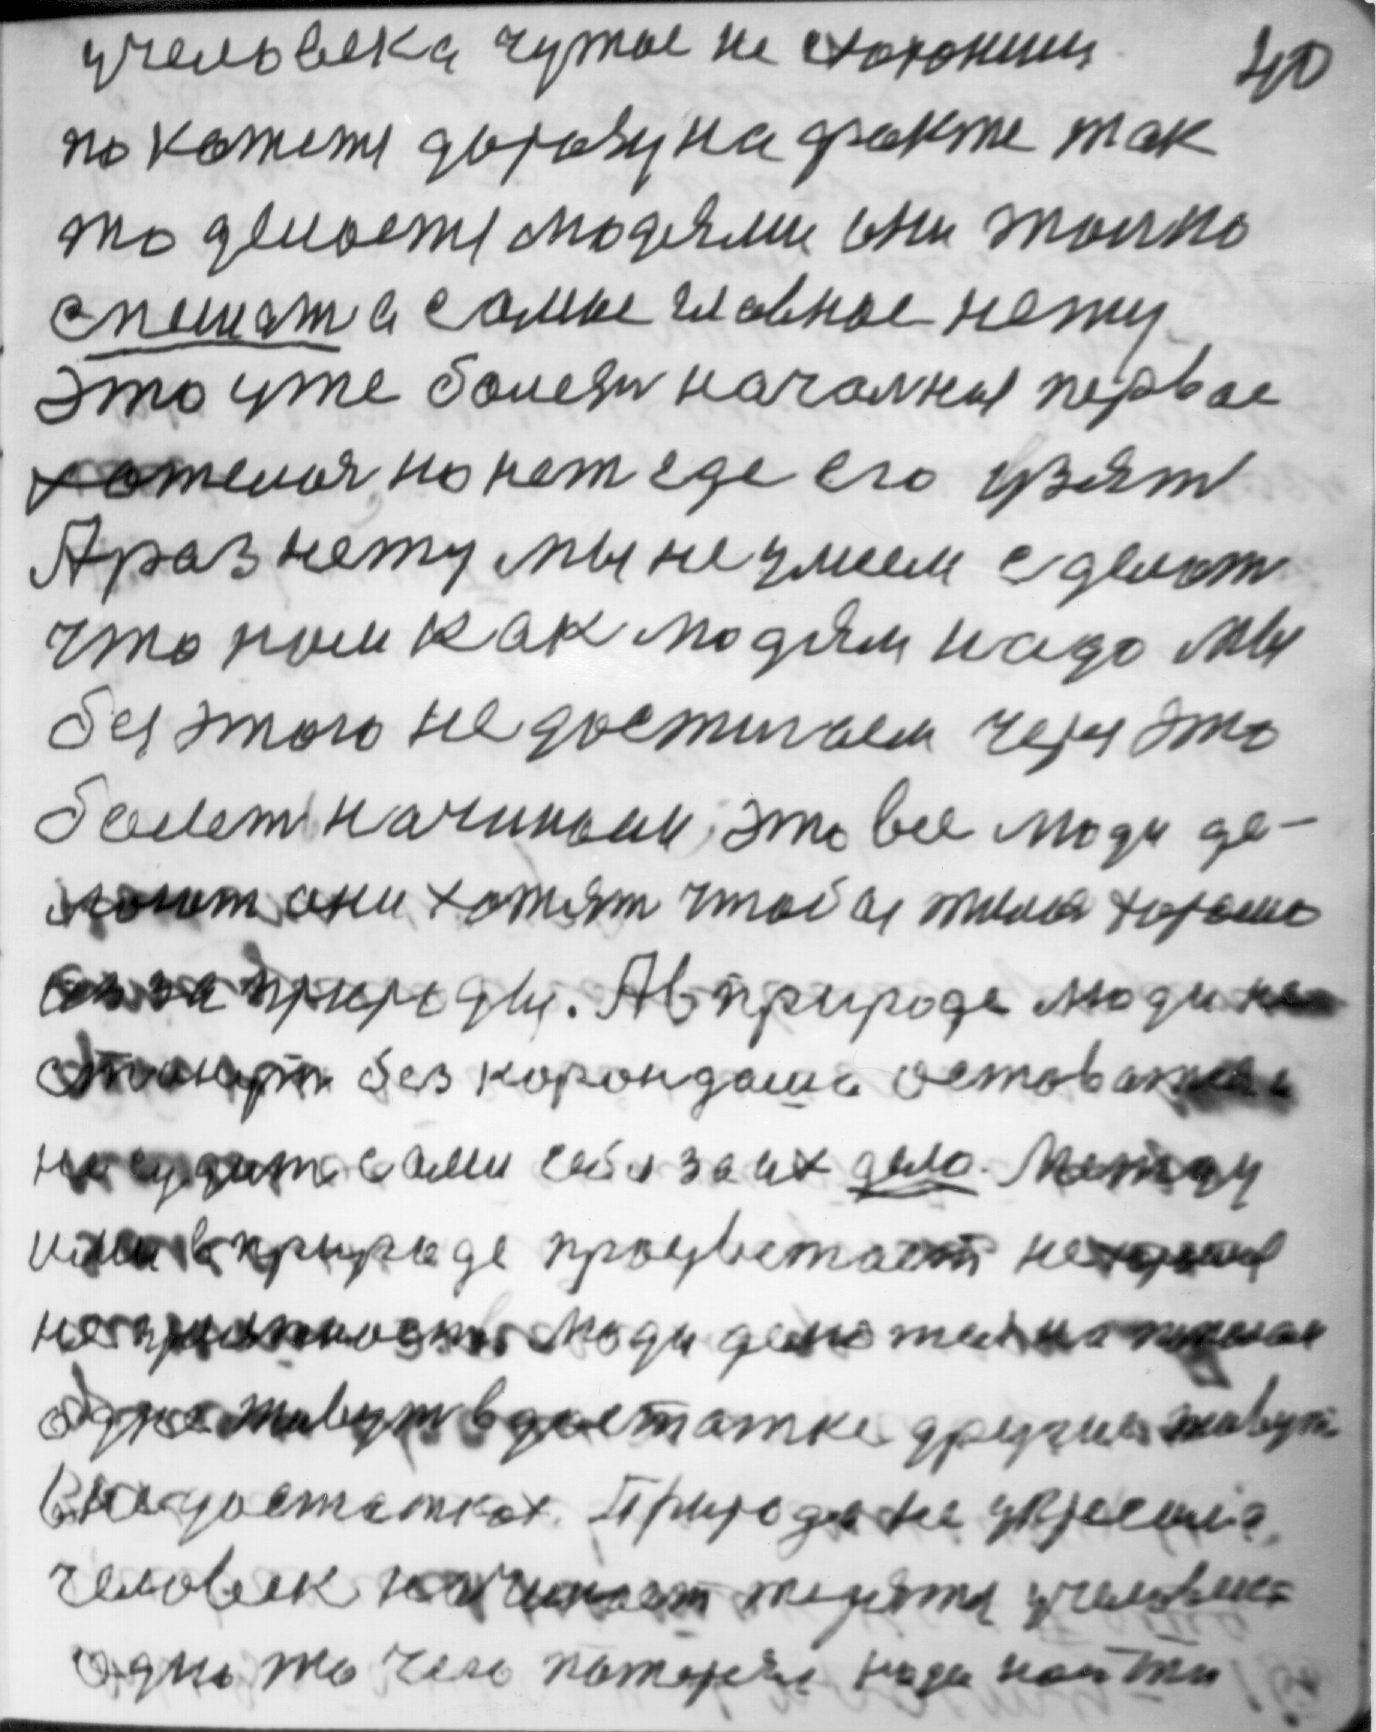 у человека чужое не 40
покажется дорогу на факте так
то делается людями они только
спешат а самое главное нету
Это уже болезн началися первое
хотелося но нет где его узят
А раз нету мы не умеем сделат
что нам как людям надо мы
без этого не достигаем через это
болет начинаем, это все люди де-
лают они хотят чтобы жилося хорошо
из за природы. А в природе люди не
станут без корондаша оставатся
не судит сами себя за их дело. Между
ими в природе процветает нехорошие
неприятност. Люди делятся на
одне живут в достатке другие живут
в недостатках. Природа не
человек начинает у человека
одно то чего потерял надо найти